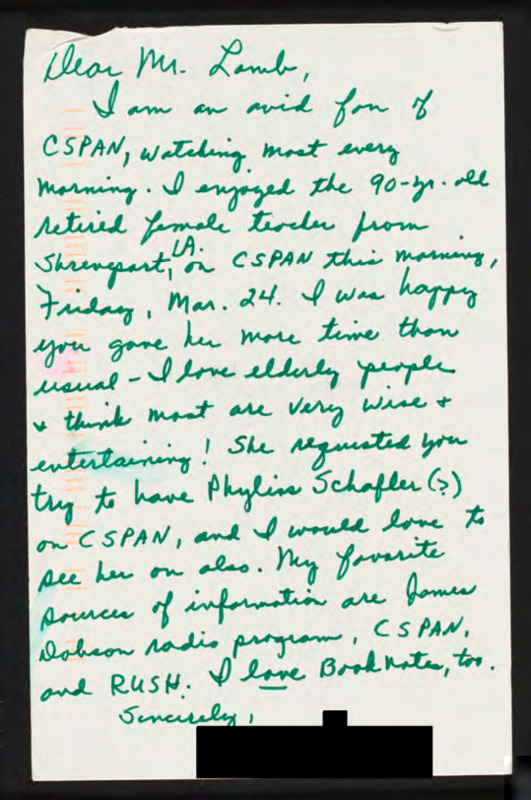 Dear Mr. Lamb,
I am an avid fan of
CSPAN, watching most every
morning. I enjoyed the 90-yr. old
retired female teacher from
Shreveport, LA. on CSPAN this morning,
Friday, Mar. 24. I was happy
you gave her more time than
usual - I love elderly people
& think most are very wise &
entertaining! She requested you
try to have Phyliss Schafler (?)
on CSPAN, and I would love to
see her on also. My favorite
sources of information are James
Dobson radio program, CSPAN,
and RUSH. I love Booknotes, too.
Sincerely,